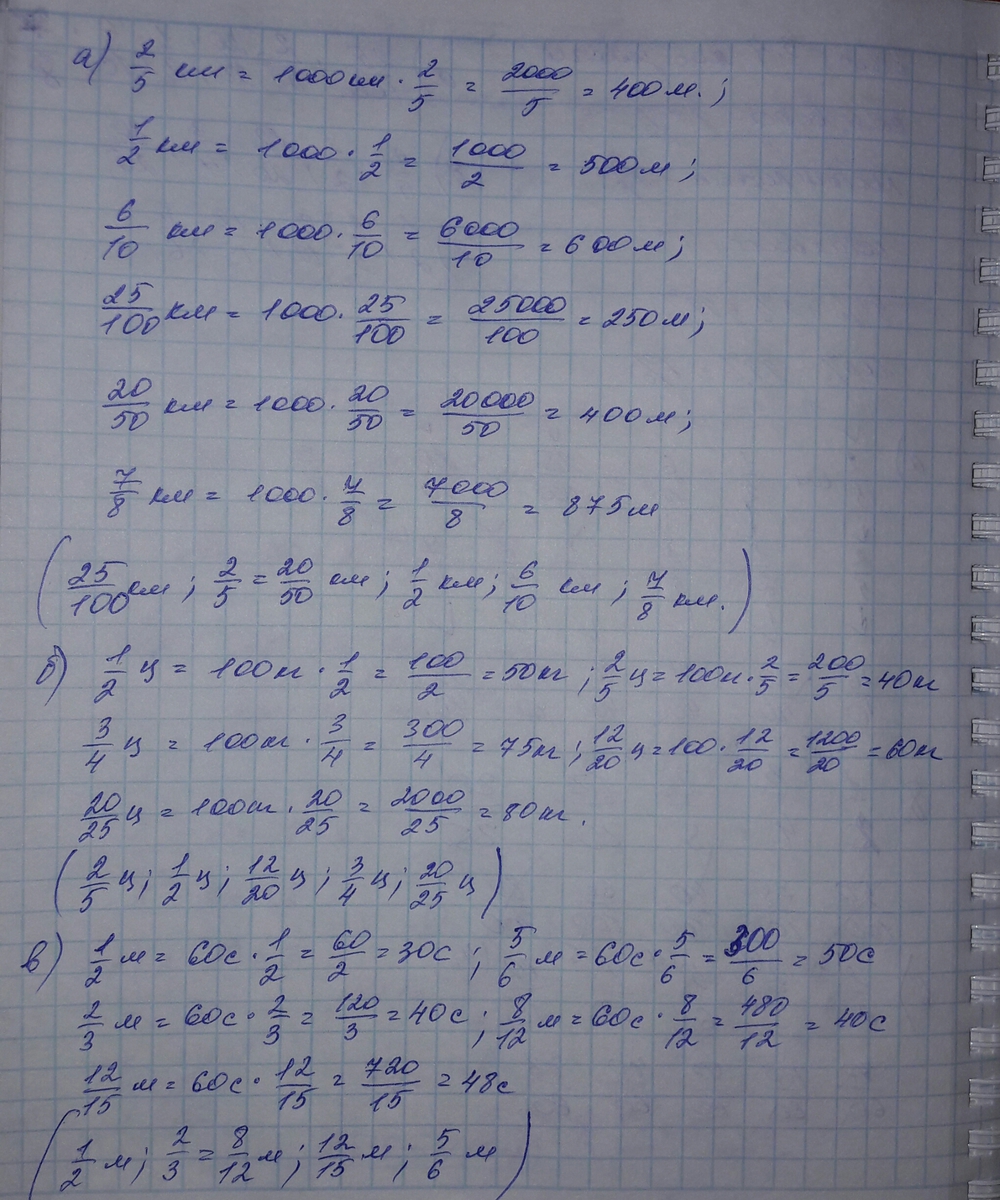 а) 2/5 км = 1000 км · 2/5 = 2000/5 = 400 м.;
1/2 км = 1000 · 1/2 = 1000/2 = 500 м;
6/10 км = 1000 · 6/10 = 6000/10 = 600 м;
25/100 км = 1000 · 25/100 = 25000/100 = 250 м;
20/50 км = 1000 · 20/50 = 20000/50 = 400 м;
7/8 км = 1000 · 7/8 = 7000/8 = 875 м
(25/100 км; 2/5 = 20/50 км; 1/2 км; 6/10 км; 7/8 км.)
б) 1/2 ц = 100 кг · 1/2 = 100/2 = 50 кг; 2/5 ц = 100 кг · 2/5 = 200/5 = 40 кг
3/4 ц = 100 кг · 3/4 = 300/4 = 75 кг; 12/20 ц = 100 · 12/20 = 1200/20 = 60 кг
20/25 ц = 100 кг · 20/25 = 2000/25 = 80 кг.
(2/5 ц; 1/2 ц; 12/20 ц; 3/4 ц; 20/25 ц)
в) 1/2 м = 60 с · 1/2 = 60/2 = 30 с; 5/6 м = 60 с · 5/6 = 300/6 = 50 с
2/3 м = 60 с · 2/3 = 120/3 = 40 с; 8/12 м = 60 с · 8/12 = 480/12 = 40 с
12/15 м = 60 с · 12/15 = 720/15 = 48 с
(1/2 м; 2/3 = 8/12 м; 12/15 м; 5/6 м)